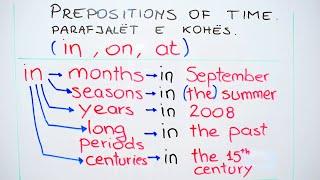 PREPOSITIONS OF TIME.
PARAFJALËT E KOHËS.
(in, on, at)
in → months → in September
seasons → in (the) summer
years → in 2008
long periods → in the past
centuries → in the 15th century